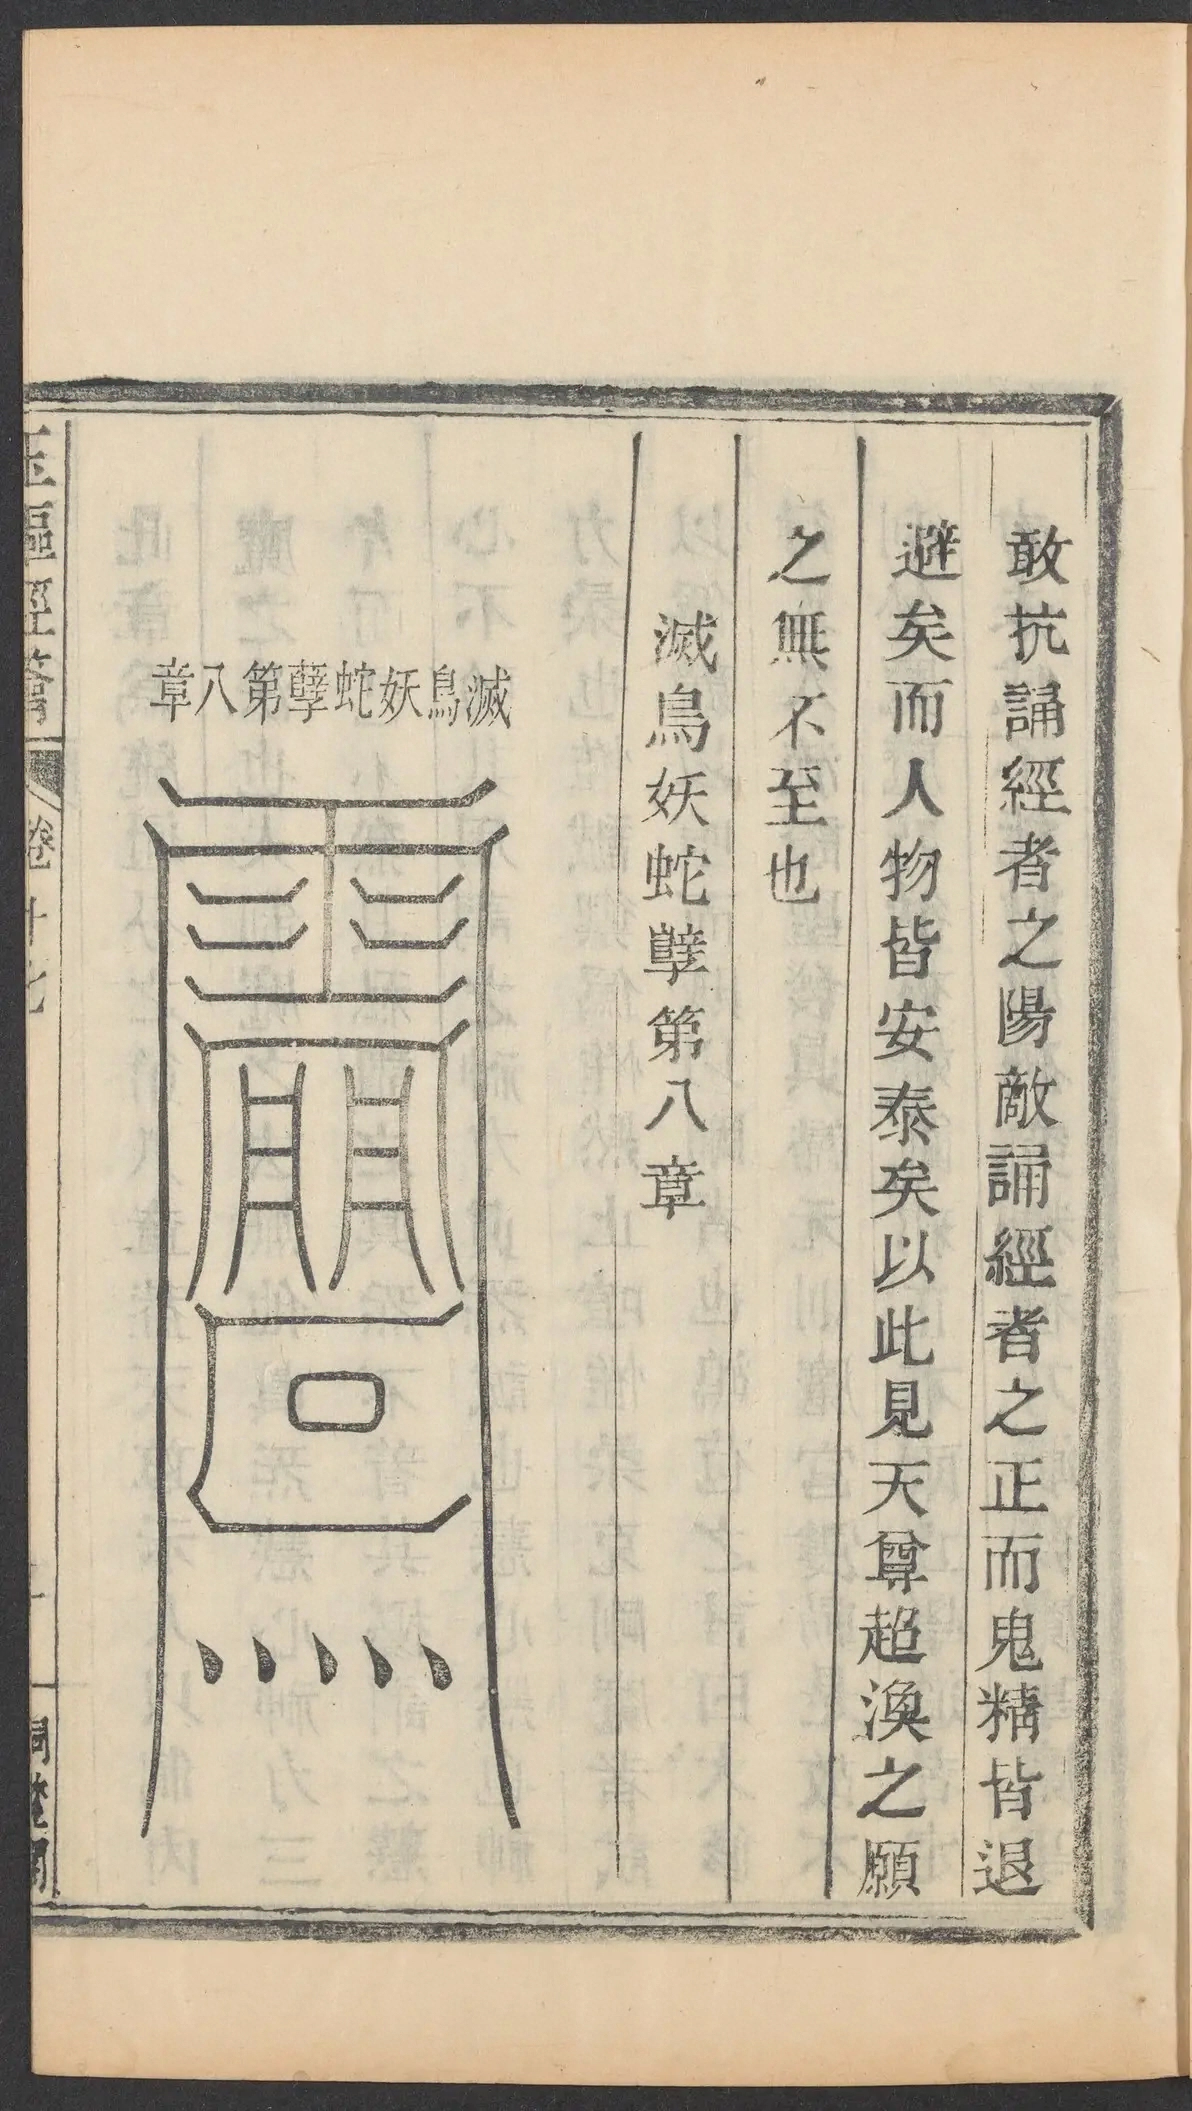 敢抗誦經者之陽敵誦經者之正而鬼精皆退
避矣而人物皆安泰矣以此見天尊超渙之願
之無不至也
滅鳥妖蛇孽第八章
滅鳥妖蛇孽第八章
玉樞經籥 卷十